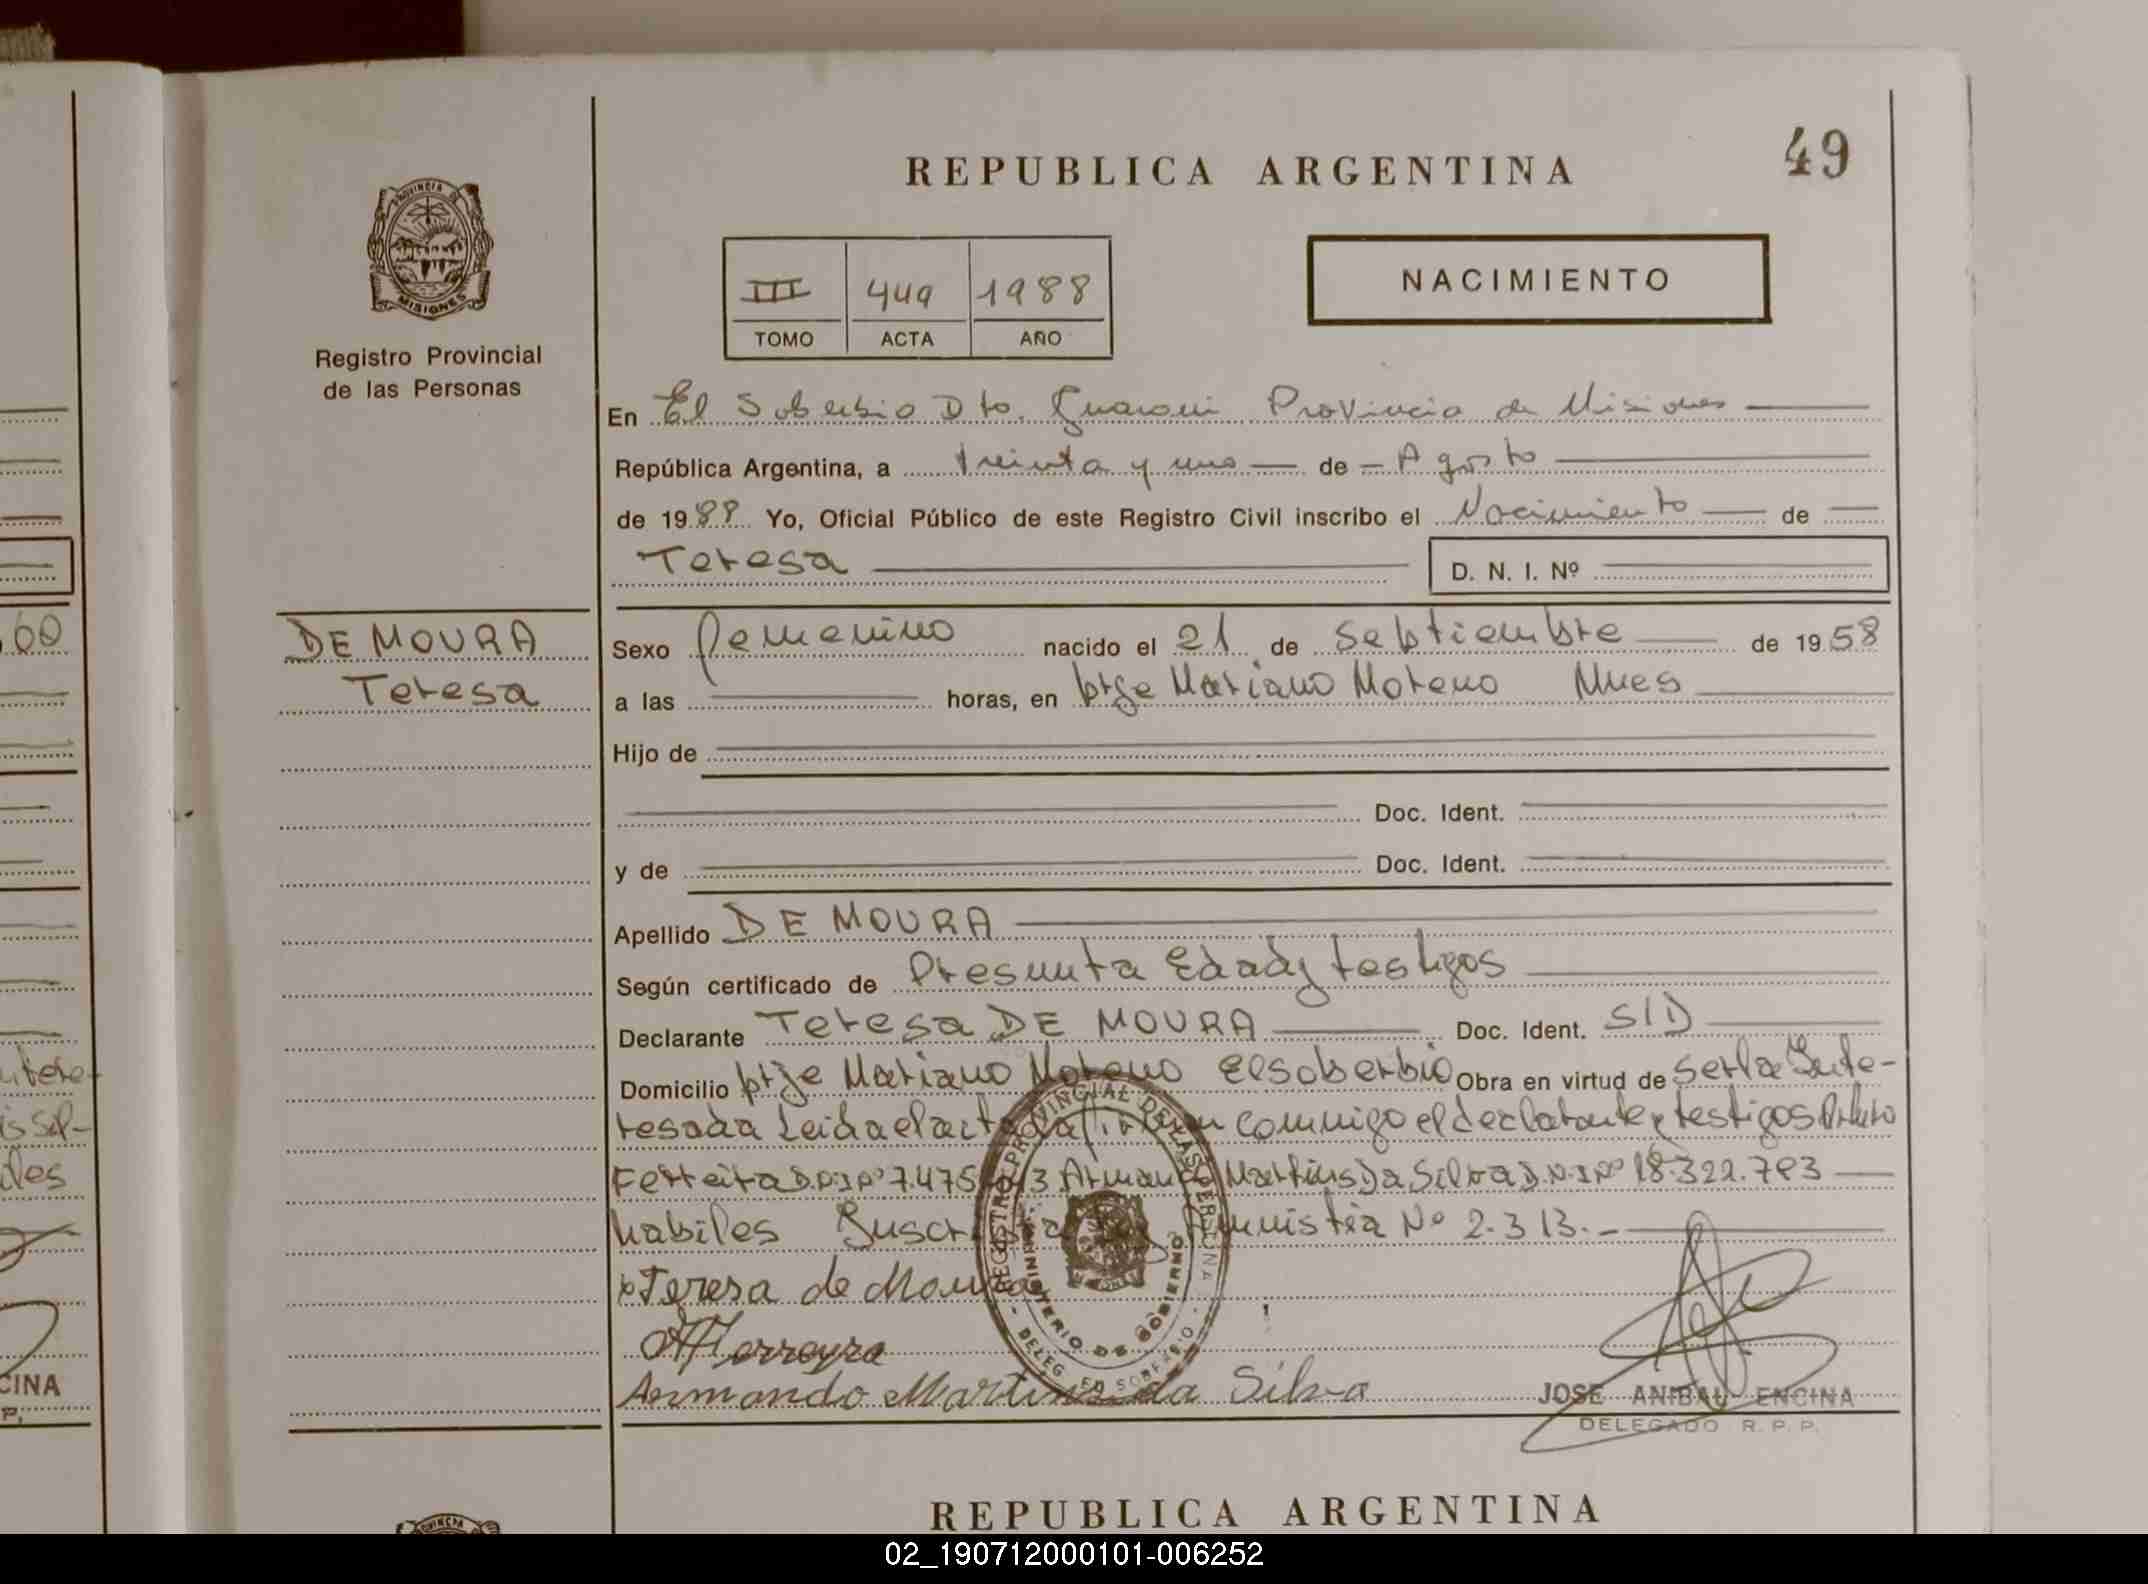 REPUBLICA ARGENTINA
49
PROVINCIA DE
MISIONES
Registro Provincial
de las Personas
III 449 1988
TOMO ACTA AÑO
NACIMIENTO
En El Soberbio Dto. Guarani Provincia de Misiones
República Argentina, a treinta y uno de Agosto
de 1988 Yo, Oficial Público de este Registro Civil inscribo el Nacimiento de
Teresa
D. N. I. Nº
DE MOURA
Teresa
Sexo femenino nacido el 21 de Sebtiembre de 1958
a las horas, en ptje Mariano Moreno Mnes
Hijo de
Doc. Ident.
y de Doc. Ident.
Apellido DE MOURA
Según certificado de Presunta Edad y testigos
Declarante Teresa DE MOURA Doc. Ident. S/D
Domicilio ptje Mariano Moreno El soberbio Obra en virtud de ser la Inte-
resada Leida el acta la firman conmigo el declarante y testigos
Ferreira D.N.I Nº 7.475 3 Armando Martins Da Silva D.N.I Nº 18.322.783
habiles Amnistia Nº 2.313.-
Teresa de Moura
Ferreyra
Armando Martins da Silva
REGISTRO PROVINCIAL DE LAS PERSONAS
MINISTERIO DE GOBIERNO
DELEG. EL SOBERBIO
JOSE ANIBAL ENCINA
DELEGADO R. P. P.
60
ntere-
is Sil-
iles
CINA
P.
REPUBLICA ARGENTINA
02_190712000101-006252